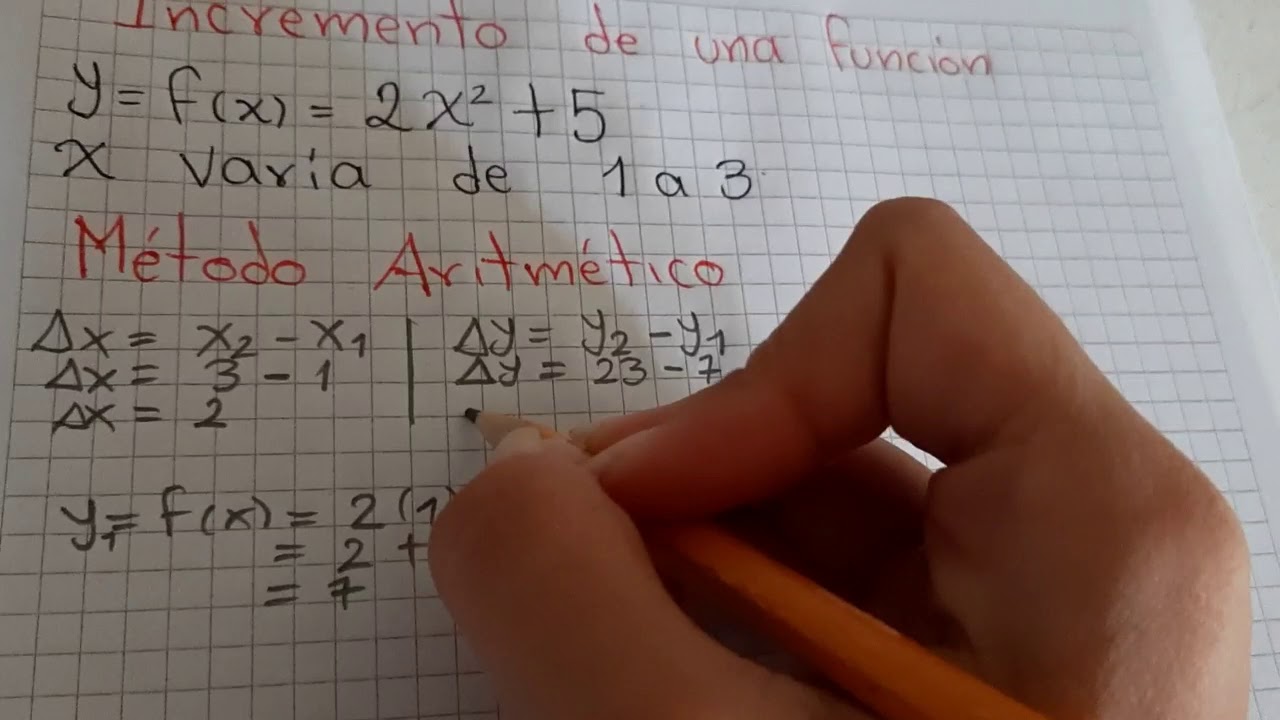 Incremento de una función
y = f(x) = 2x² + 5
x varia de 1 a 3
Método Aritmético
Δx = x₂ - x₁ | Δy = y₂ - y₁
Δx = 3 - 1 | Δy = 23 - 7
Δx = 2
y₁ = f(x) = 2(1)
= 2 +
= 7